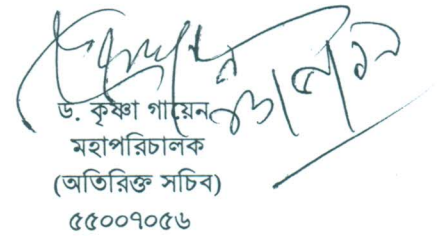 ড. কৃষ্ণা গায়েন
মহাপরিচালক
(অতিরিক্ত সচিব)
৫৫০০৭০৫৬